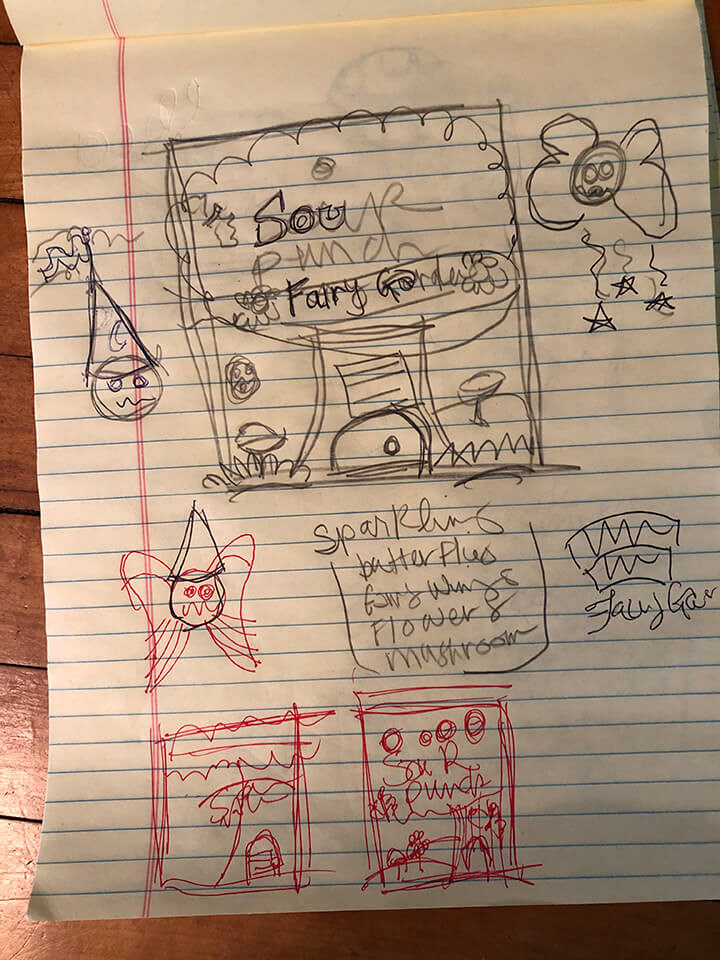 Sour
Punch
Fairy Garden
Sparkling
butterflies
fairy wings
Flowers
mushroom
Fairy Gar
Sour
Punch